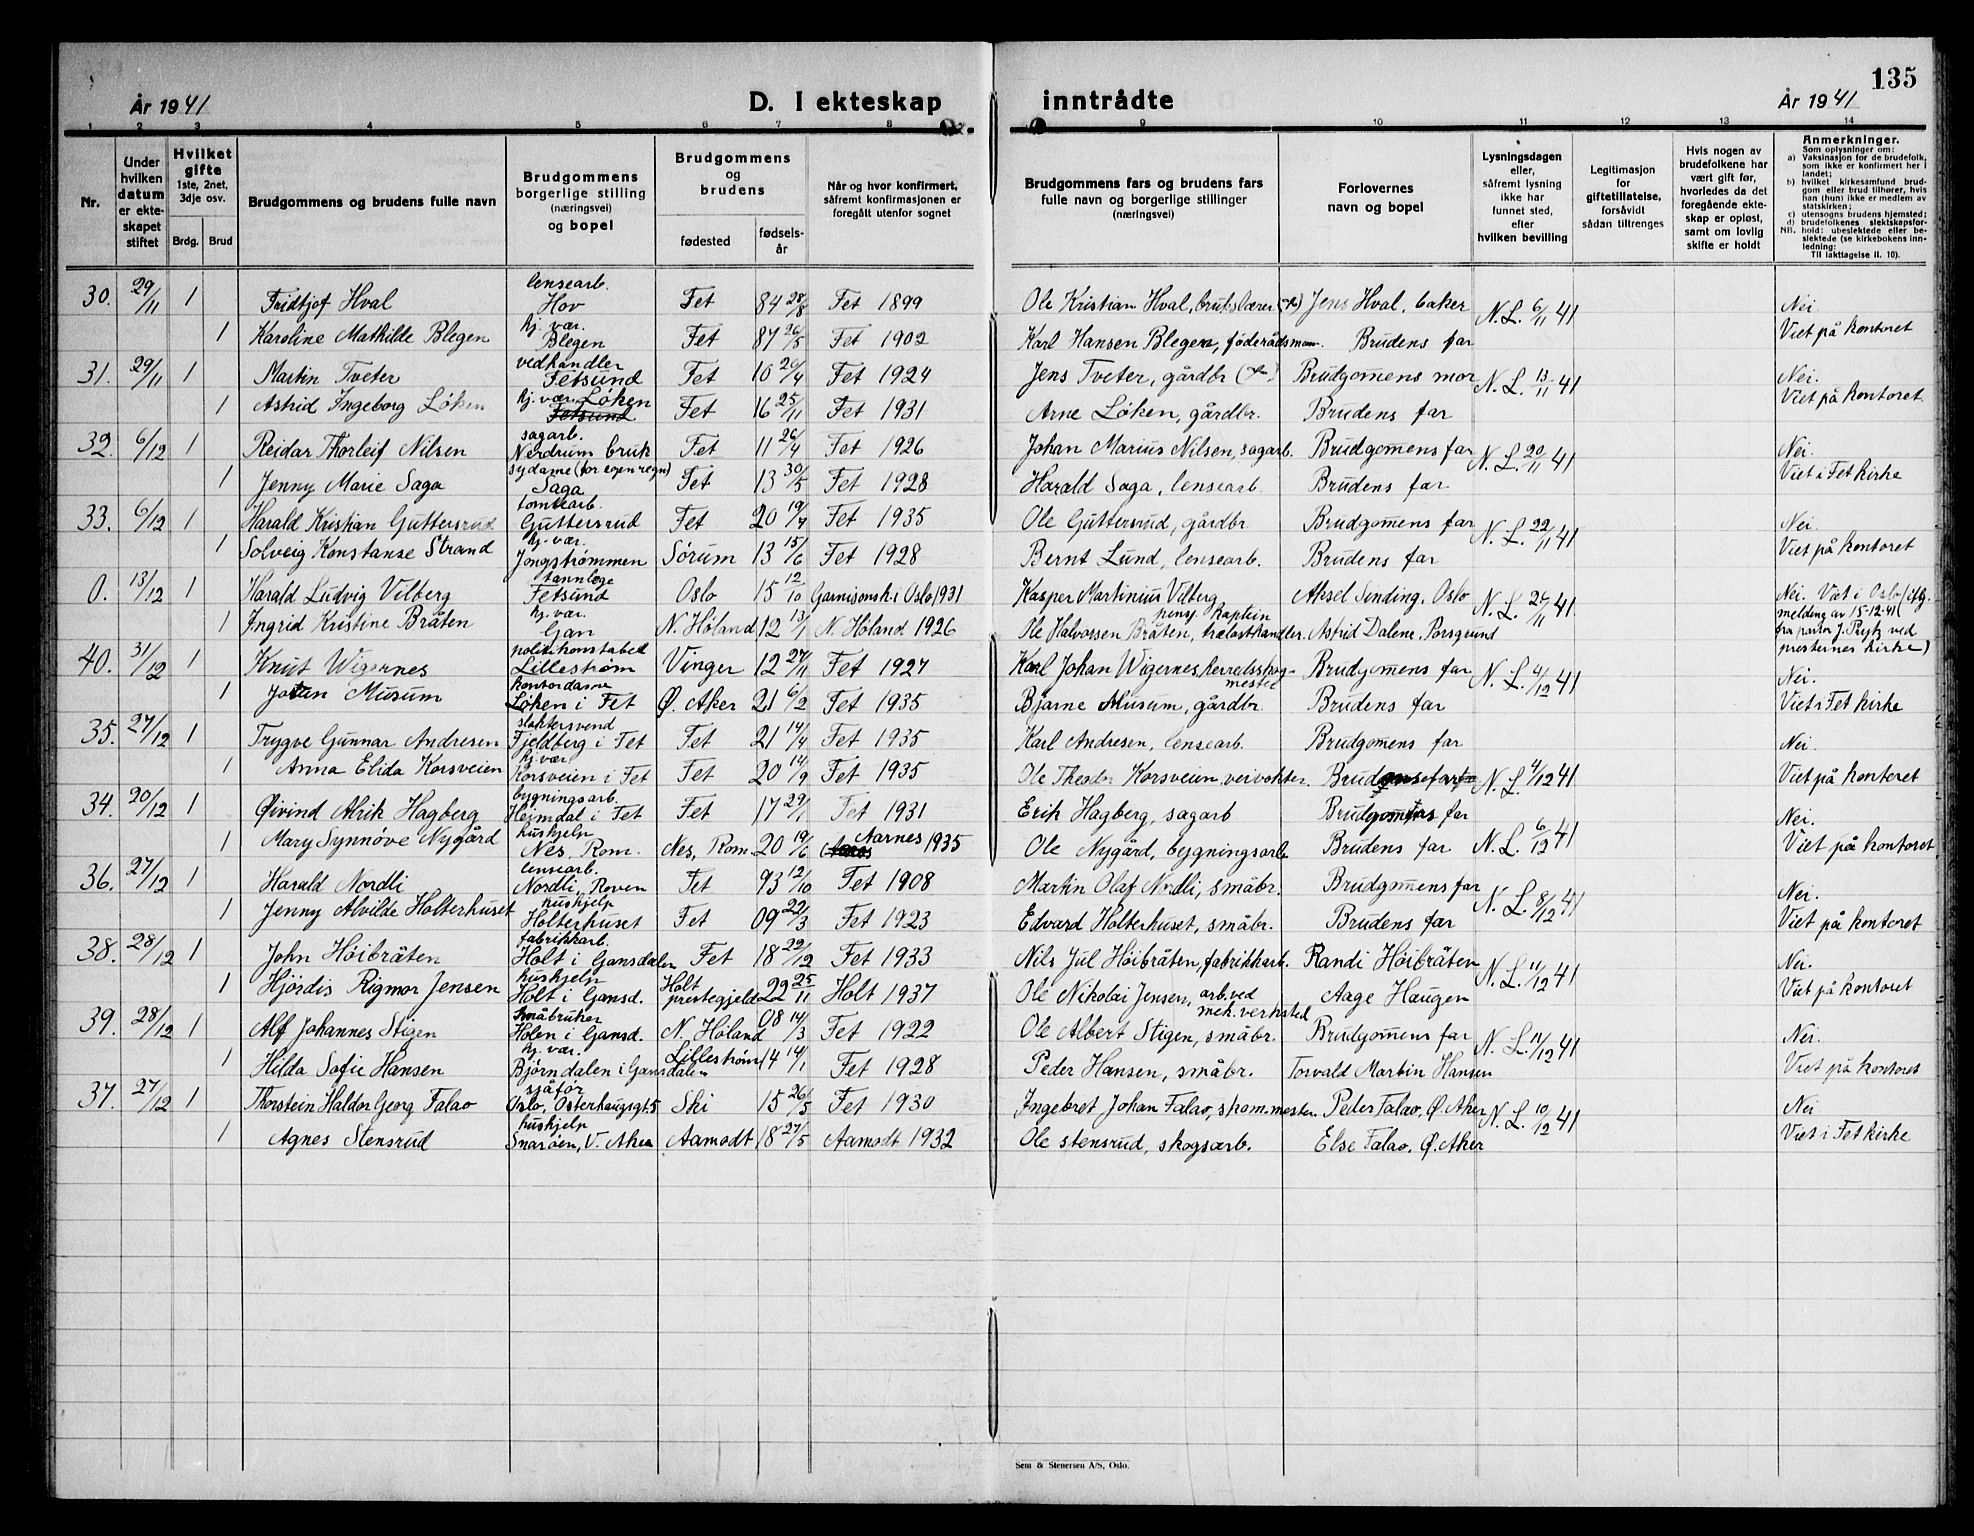 135
År 1941 D. I ekteskap inntrådte År 1941
1 2 3 4 5 6 7 8 9 10 11 12 13 14
Nr.
Under hvilken datum er ekteskapet stiftet
Hvilket gifte 1ste, 2net, 3dje osv.
Brdg. Brud
Brudgommens og brudens fulle navn
Brudgommens borgerlige stilling (næringsvei) og bopel
Brudgommens og brudens
fødested fødselsår
Når og hvor konfirmert, såfremt konfirmasjonen er foregått utenfor sognet
Brudgommens fars og brudens fars fulle navn og borgerlige stillinger (næringsvei)
Forlovernes navn og bopel
Lysningsdagen eller, såfremt lysning ikke har funnet sted, efter hvilken bevilling
Legitimasjon for giftetillatelse, forsåvidt sådan tiltrenges
Hvis nogen av brudefolkene har vært gift før, hvorledes da det foregående ekteskap er opløst, samt om lovlig skifte er holdt
Anmerkninger.
Som oplysninger om:
a) Vaksinasjon for de brudefolk, som ikke er konfirmert her i landet;
b) hvilket kirkesamfund brudgom eller brud tilhører, hvis han (hun) ikke er medlem av statskirken;
c) utensogns brudens hjemsted;
d) brudefolkenes slektskapsforhold: ubeslektede eller beslektede (se kirkebokens innledning:
NB.
Til iakttagelse II. 10).
30. 29/11 1 Fridtjof Hval lensearb. Hov Fet 84 28/8 Fet 1899 Ole Kristian Hval, Jens Hval, baker N.L. 6/11 41 Nei.
1 Karoline Mathilde Blegen hj. vær. Blegen Fet 87 26/5 Fet 1902 Karl Hansen Blegen, föderådsmann. Brudens far Viet på kontoret
31. 29/11 1 Martin Tveter vedhandler Fetsund Fet 10 20/4 Fet 1924 Jens Tveter, gårdbr Brudgomens mor N.L. 13/11 41 Nei.
1 Astrid Ingeborg Löken hj. vær. Löken Fetsund Fet 16 25/11 Fet 1931 Arne Löken, gårdbr. Brudens far Viet på kontoret
32. 6/12 1 Reidar Thorleif Nilsen sagarb. Nerdrum bruk Fet 11 26/4 Fet 1926 Johan Marius Nilsen, sagarb. Brudgomens far N.L. 20/11 41 Nei.
1 Jenny Marie Saga sydame (for egen regn) Saga Fet 13 30/5 Fet 1928 Harald Saga, lensearb. Brudens far Viet i Fet kirke
33. 6/12 1 Harald Kristian Guttersrud tomtearb. Guttersrud Fet 20 19/7 Fet 1935 Ole Guttersrud, gårdbr Brudgomens far N.L. 22/11 41 Nei.
1 Solveig Konstanse Strand hj. vær. Jongstrømmen Sörum 13 15/6 Fet 1928 Bernt Lund, lensearb. Brudens far Viet på kontoret
0. 13/12 1 Harald Ludvig Vilberg tannlege Fetsund Oslo 15 12/10 Garnisonsk. i Oslo 1931 Kasper Martinius Vilberg pensj. kaptein Aksel Sinding, Oslo N.L. 26/11 41 Nei. Viet i Oslo ifлg.
1 Ingrid Kristine Bråten hj. vær. Gan N. Höland 12 13/1 N. Höland 1926 Ole Halvorsen Bråten, trelasthandler. Astrid Dalene, Porsgrund melding av 15-12-41 fra pastor J. Prytz ved presternes kirke)
40. 31/12 1 Knut Wigernes politikonstabel Lillestrøm Vinger 12 27/11 Fet 1927 Karl Johan Wigernes, herredsskogmester Brudgomens far N.L. 4/12 41 Nei.
1 Musum kontordame Löken i Fet Ø. Aker 21 6/2 Fet 1935 Bjarne Musum, gårdbr. Brudens far Viet i Fet kirke
35. 27/12 1 Trygve Gunnar Andresen slaktersvend Fjeldberg i Fet Fet 21 14/4 Fet 1935 Karl Andresen, lensearb. Brudgomens far Nei.
1 Anna Elida Korsveien hj. vær Korsveien i Fet Fet 20 14/9 Fet 1935 Ole Theodor Korsveien, veivokter. N.L. 4/12 41 Viet på kontoret
34. 20/12 1 Øivind Alrik Hagberg bygningsarb. Heimdal i Fet Fet 17 29/1 Fet 1931 Erik Hagberg, sagarb far Nei.
1 Mary Synnöve Nygård hushjelp Nes, Rom. Nes, Rom. 20 19/6 Aarnes 1935 Ole Nygård, bygningsarb. Brudens far N.L. 6/12 41 Viet på kontoret
36. 27/12 1 Harald Nordli lensearb. Nordli, Roven Fet 93 12/10 Fet 1908 Martin Olaf Nordli, småbr. Brudgomens far N.L. 8/12 41 Nei.
1 Jenny Alvilde Holterhuset hushjelp Holterhuset Fet 09 22/3 Fet 1923 Edvard Holterhuset, småbr. Brudens far Viet på kontoret
38. 28/12 1 John Höibråten fabrikkarb. Holt i Gansdalen Fet 18 29/12 Fet 1933 Nils Jul Höibråten, fabrikkarb. Randi Höibråten N.L. 11/12 41 Nei.
1 Hjördis Rigmor Jensen hushjelp Holt i Gansd. Holt prestegjeld 22 25/11 Holt 1937 Ole Nikolai Jensen, arb. ved mek. verksted Aage Haugen Viet på kontoret
39. 28/12 1 Alf Johannes Stigen småbruker Holen i Gansd. N. Höland 08 14/3 Fet 1922 Ole Albert Stigen, småbr. Brudgomens far N.L. 11/12 41 Nei.
1 Hilda Sofie Hansen hj. vær. Björndalen i Gansdalen Lillestrøm 14 14/1 Fet 1928 Peder Hansen, småbr. Torvald Martin Hansen Viet på kontoret
37. 27/12 1 Thorstein Haldor Georg Falao sjåfør Oslo, Osterhausgt. 5 Ski 15 26/5 Fet 1930 Ingebret Johan Falao, skom.mester. Peder Falao, Ø. Aker N.L. 10/12 41 Nei
1 Agnes Stensrud hushjelp Snaröen, V. Aker Aamodt 18 27/5 Aamodt 1932 Ole Stensrud, skogsarb. Else Falao, Ø. Aker Viet i Fet kirke
Sem & Stenersen A/S, Oslo.